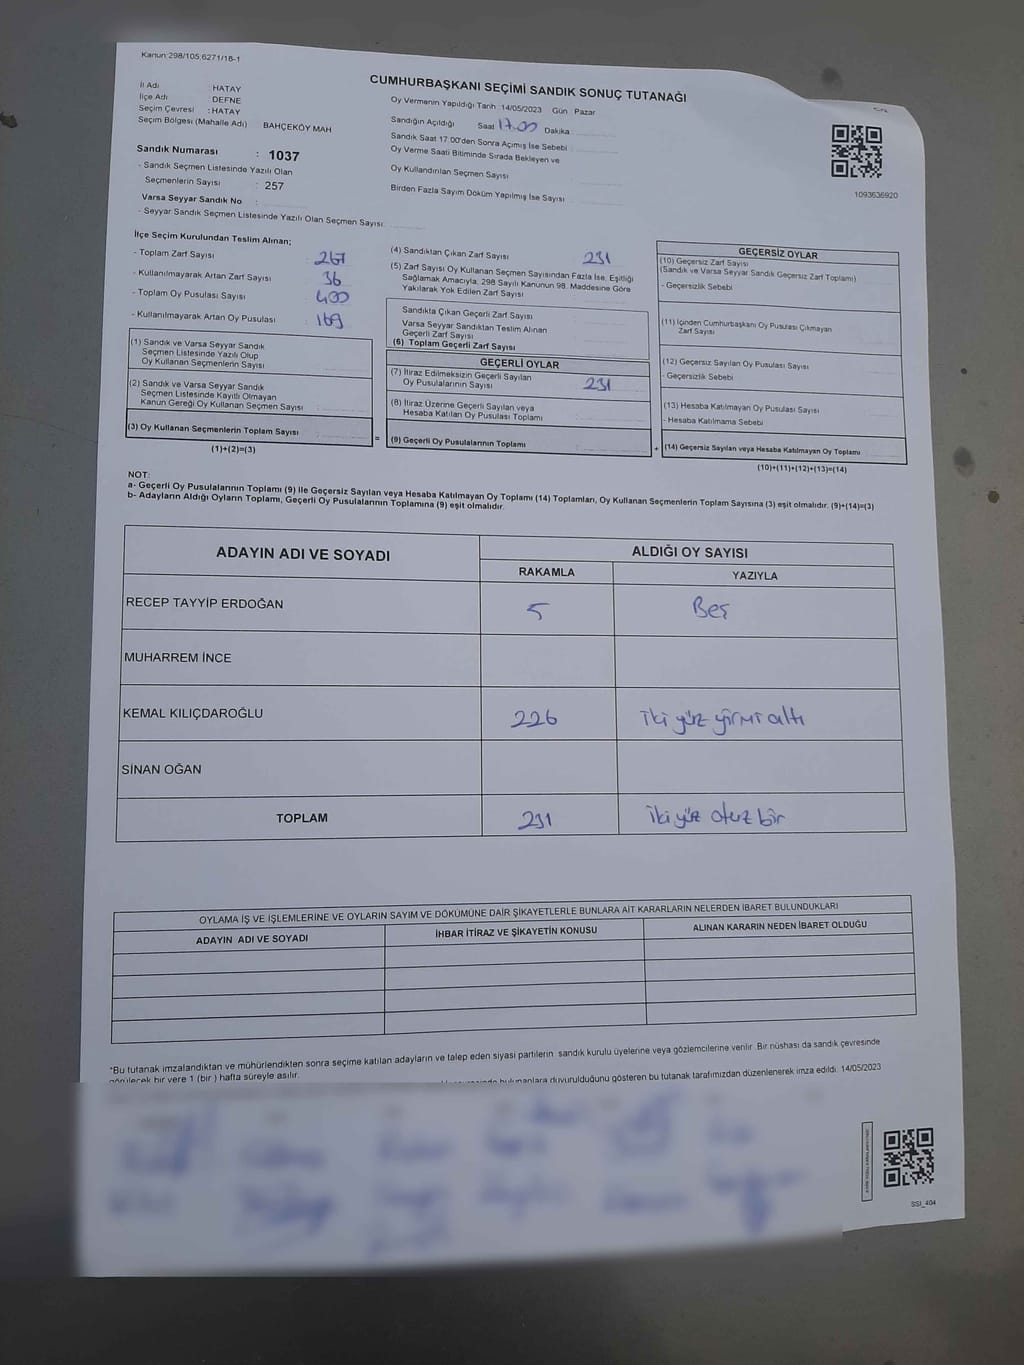 Kanun:298/105;6271/18-1
CUMHURBAŞKANI SEÇİMİ SANDIK SONUÇ TUTANAĞI
İl Adı : HATAY
İlçe Adı : DEFNE
Seçim Çevresi : HATAY
Seçim Bölgesi (Mahalle Adı) BAHÇEKÖY MAH
Sandık Numarası : 1037
- Sandık Seçmen Listesinde Yazılı Olan
Seçmenlerin Sayısı : 257
Varsa Seyyar Sandık No :
- Seyyar Sandık Seçmen Listesinde Yazılı Olan Seçmen Sayısı:
Oy Vermenin Yapıldığı Tarih :14/05/2023 Gün : Pazar
Sandığın Açıldığı Saat 17.00 Dakika
Sandık Saat 17:00'den Sonra Açımış İse Sebebi :
Oy Verme Saati Bitiminde Sırada Bekleyen ve
Oy Kullandırılan Seçmen Sayısı :
Birden Fazla Sayım Döküm Yapılmış İse Sayısı :
1093636920
İlçe Seçim Kurulundan Teslim Alınan;
- Toplam Zarf Sayısı : 267
- Kullanılmayarak Artan Zarf Sayısı : 36
- Toplam Oy Pusulası Sayısı : 400
- Kullanılmayarak Artan Oy Pusulası : 169
(1) Sandık ve Varsa Seyyar Sandık
Seçmen Listesinde Yazılı Olup
Oy Kullanan Seçmenlerin Sayısı :
(2) Sandık ve Varsa Seyyar Sandık
Seçmen Listesinde Kayıtlı Olmayan
Kanun Gereği Oy Kullanan Seçmen Sayısı :
(3) Oy Kullanan Seçmenlerin Toplam Sayısı :
(1)+(2)=(3)
=
(4) Sandıktan Çıkan Zarf Sayısı : 231
(5) Zarf Sayısı Oy Kullanan Seçmen Sayısından Fazla İse, Eşitliği
Sağlamak Amacıyla, 298 Sayılı Kanunun 98. Maddesine Göre
Yakılarak Yok Edilen Zarf Sayısı :
Sandıkta Çıkan Geçerli Zarf Sayısı :
Varsa Seyyar Sandıktan Teslim Alınan
Geçerli Zarf Sayısı :
(6) Toplam Geçerli Zarf Sayısı :
GEÇERLİ OYLAR
(7) İtiraz Edilmeksizin Geçerli Sayılan
Oy Pusulalarının Sayısı : 231
(8) İtiraz Üzerine Geçerli Sayılan veya
Hesaba Katılan Oy Pusulası Toplamı :
(9) Geçerli Oy Pusulalarının Toplamı :
+
GEÇERSİZ OYLAR
(10) Geçersiz Zarf Sayısı
(Sandık ve Varsa Seyyar Sandık Geçersiz Zarf Toplamı)
- Geçersizlik Sebebi :
(11) İçinden Cumhurbaşkanı Oy Pusulası Çıkmayan
Zarf Sayısı :
(12) Geçersiz Sayılan Oy Pusulası Sayısı :
- Geçersizlik Sebebi :
(13) Hesaba Katılmayan Oy Pusulası Sayısı :
- Hesaba Katılmama Sebebi :
(14) Geçersiz Sayılan veya Hesaba Katılmayan Oy Toplamı :
(10)+(11)+(12)+(13)=(14)
NOT:
a- Geçerli Oy Pusulalarının Toplamı (9) ile Geçersiz Sayılan veya Hesaba Katılmayan Oy Toplamı (14) Toplamları, Oy Kullanan Seçmenlerin Toplam Sayısına (3) eşit olmalıdır. (9)+(14)=(3)
b- Adayların Aldığı Oyların Toplamı, Geçerli Oy Pusulalarının Toplamına (9) eşit olmalıdır.
ADAYIN ADI VE SOYADI ALDIĞI OY SAYISI
RAKAMLA YAZIYLA
RECEP TAYYİP ERDOĞAN 5 Beş
MUHARREM İNCE
KEMAL KILIÇDAROĞLU 226 iki yüz yirmi altı
SİNAN OĞAN
TOPLAM 231 iki yüz otuz bir
OYLAMA İŞ VE İŞLEMLERİNE VE OYLARIN SAYIM VE DÖKÜMÜNE DAİR ŞİKAYETLERLE BUNLARA AİT KARARLARIN NELERDEN İBARET BULUNDUKLARI
ADAYIN ADI VE SOYADI İHBAR İTİRAZ VE ŞİKAYETİN KONUSU ALINAN KARARIN NEDEN İBARET OLDUĞU
*Bu tutanak imzalandıktan ve mühürlendikten sonra seçime katılan adayların ve talep eden siyasi partilerin sandık kurulu üyelerine veya gözlemcilerine verilir. Bir nüshası da sandık çevresinde
görülecek bir yere 1 (bir ) hafta süreyle asılır.
bulunanlara duyurulduğunu gösteren bu tutanak tarafımızdan düzenlenerek imza edildi. 14/05/2023
SSI_404